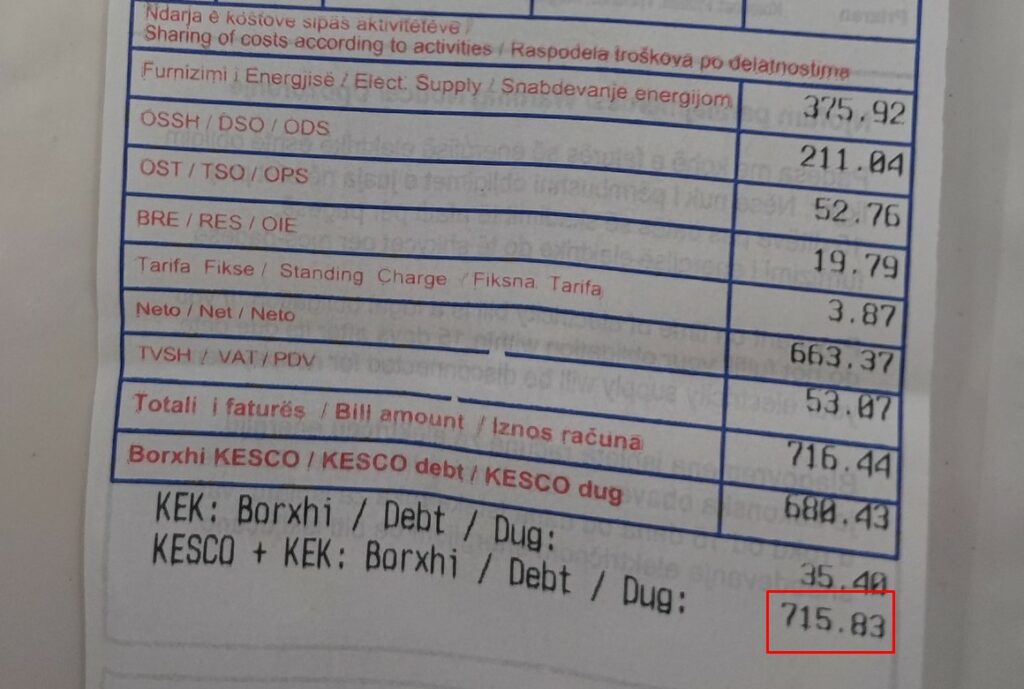 Ndarja e kostove sipas aktiviteteve /
Sharing of costs according to activities / Raspodela troškova po delatnostima
Furnizimi i Energjisë / Elect. Supply / Snabdevanje energijom 375.92
OSSH / DSO / ODS 211.04
OST / TSO / OPS 52.76
BRE / RES / OIE 19.79
Tarifa Fikse / Standing Charge / Fiksna Tarifa 3.87
Neto / Net / Neto 663.37
TVSH / VAT / PDV 53.07
Totali i faturës / Bill amount / Iznos računa 716.44
Borxhi KESCO / KESCO debt / KESCO dug 680.43
KEK: Borxhi / Debt / Dug: 35.40
KESCO + KEK: Borxhi / Debt / Dug: 715.83